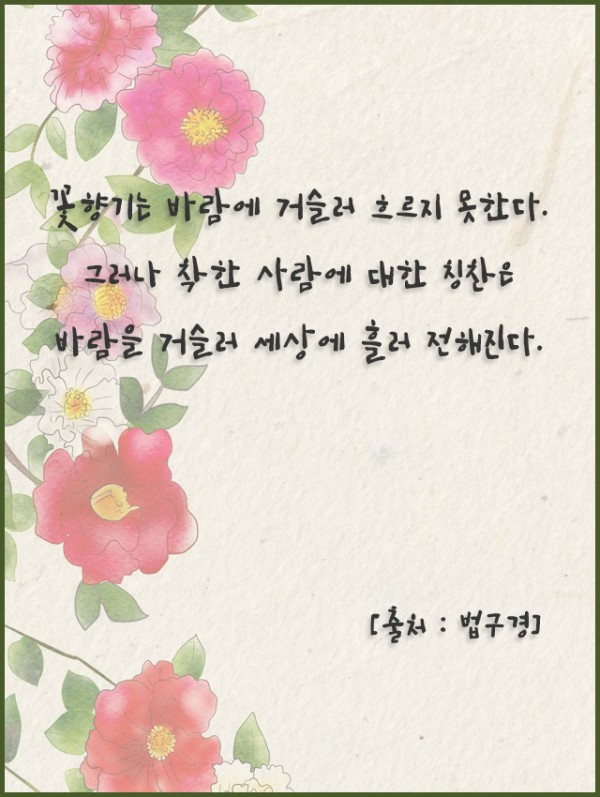 꽃향기는 바람에 거슬러 흐르지 못한다.
그러나 착한 사람에 대한 칭찬은
바람을 거슬러 세상에 흘러 전해진다.
[출처 : 법구경]